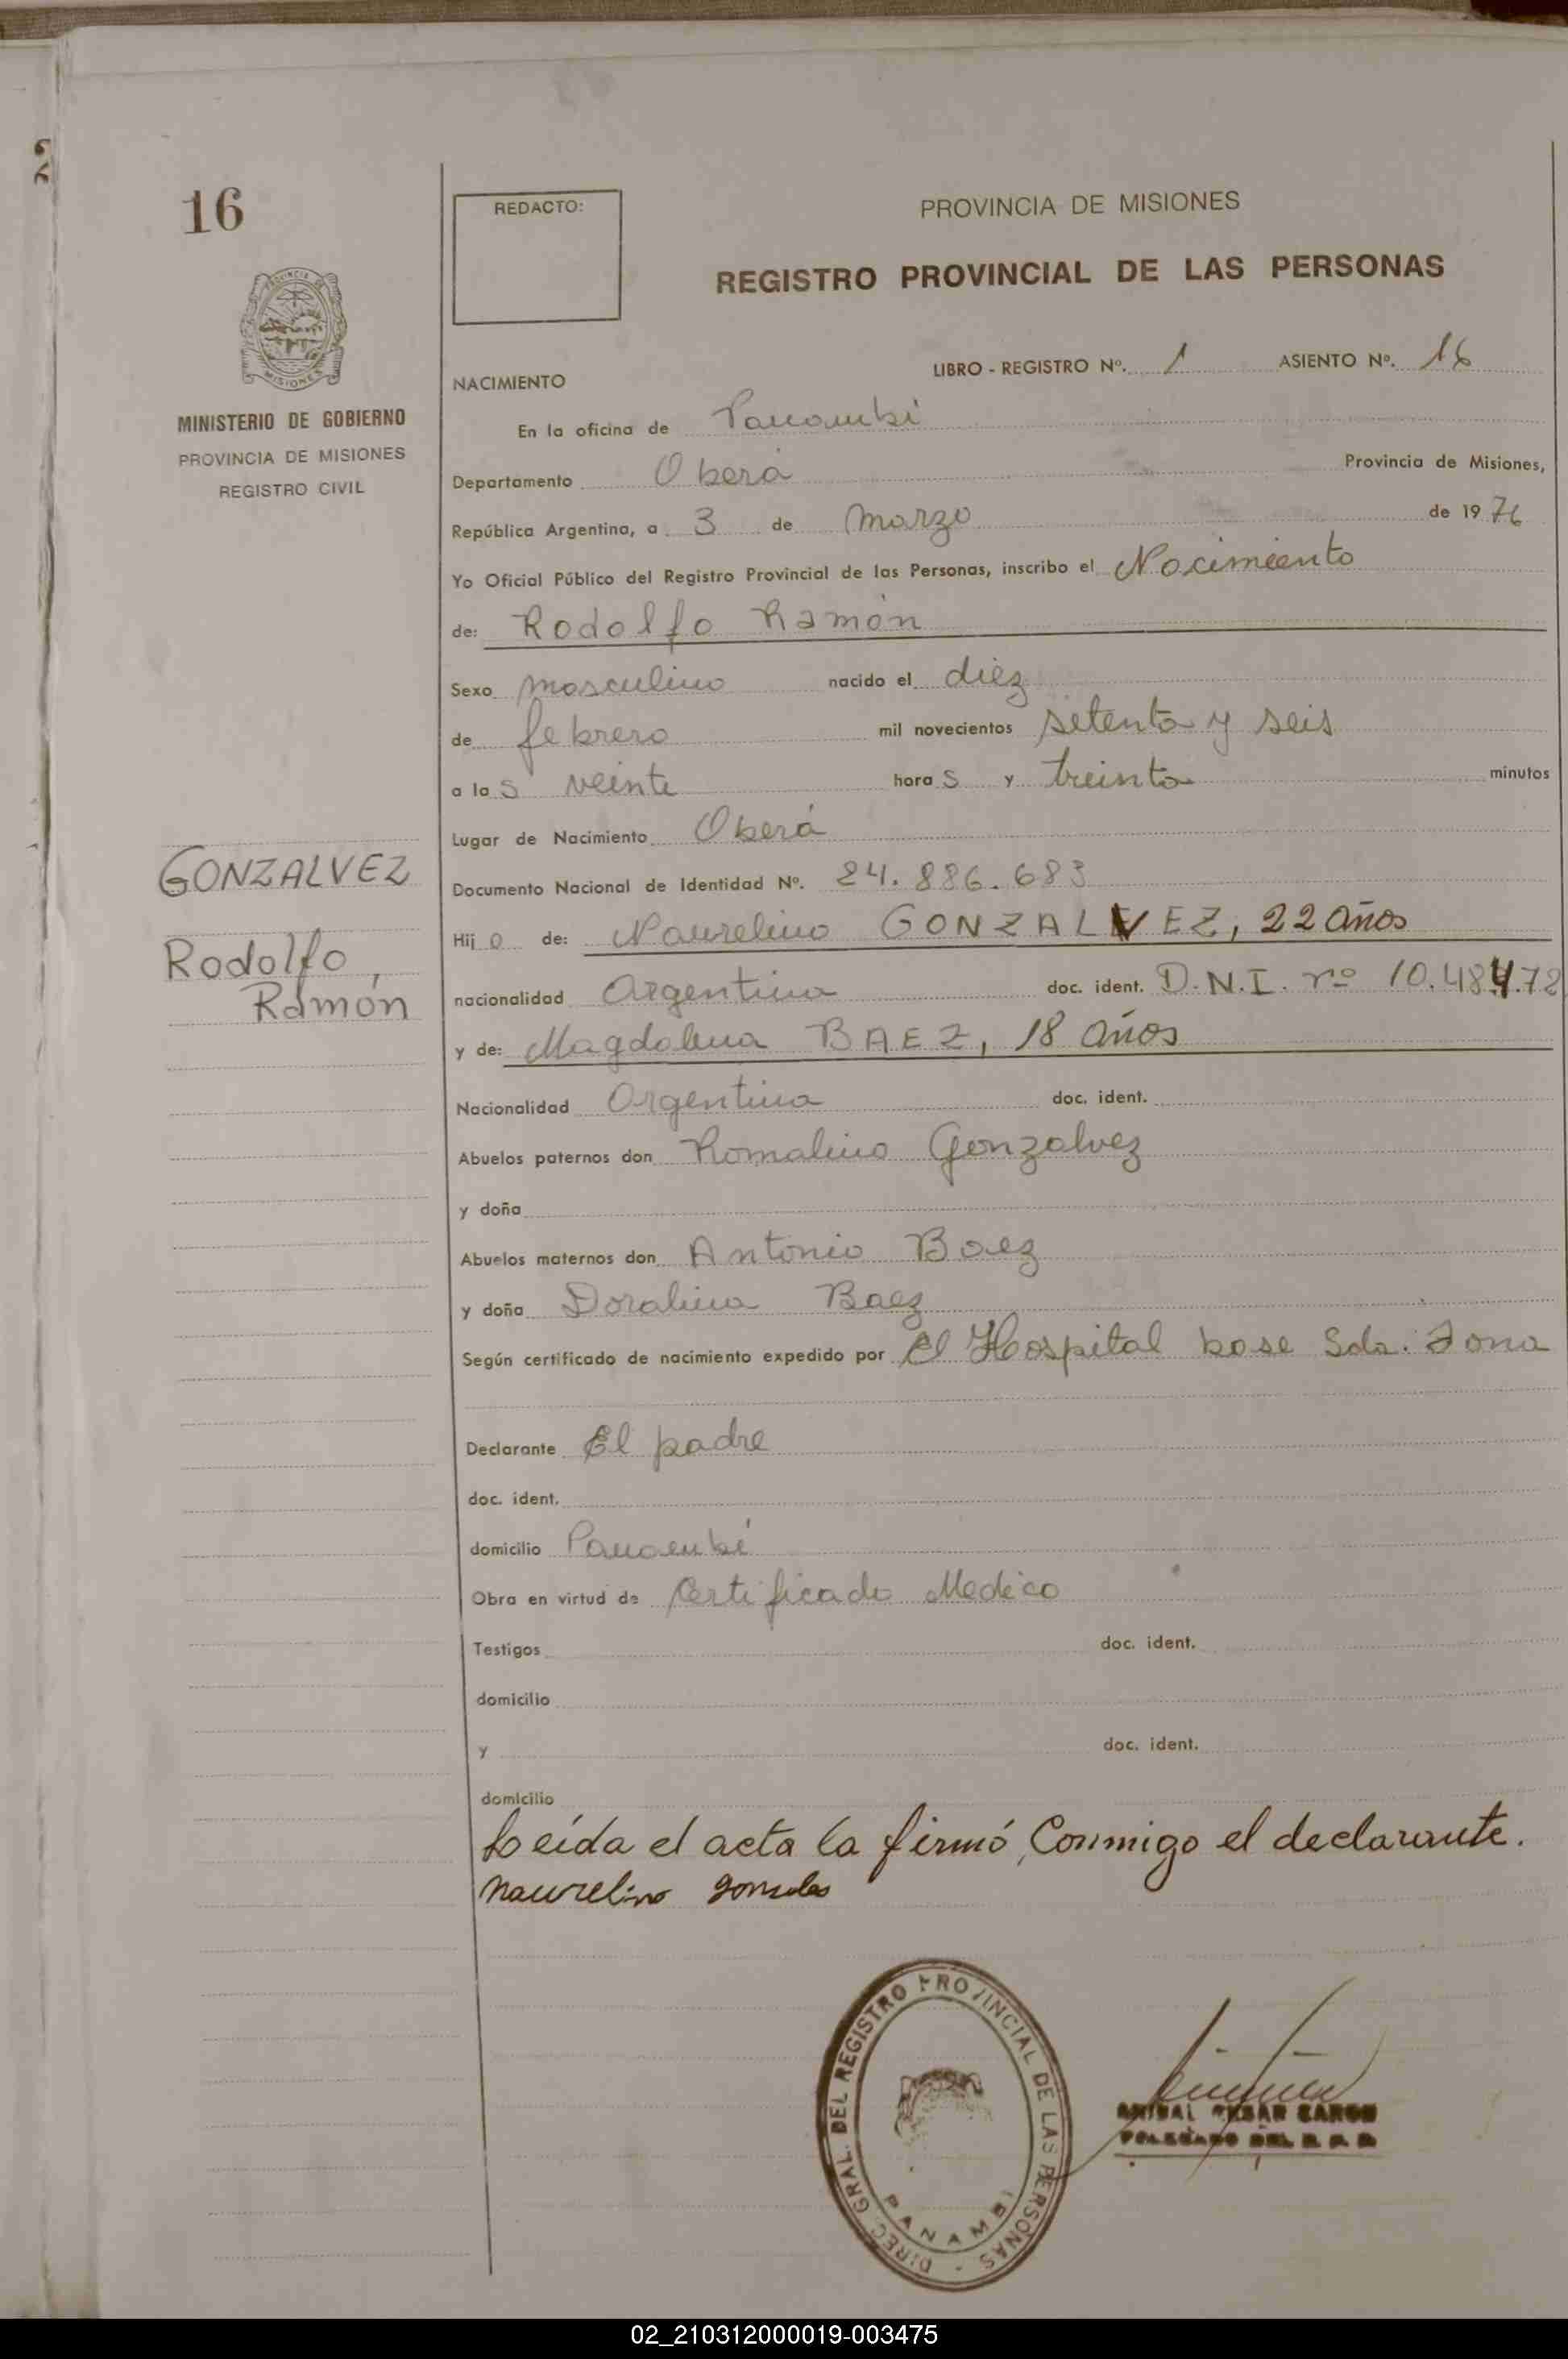 16
REDACTO:
PROVINCIA DE MISIONES
REGISTRO PROVINCIAL DE LAS PERSONAS
PROVINCIA DE
MISIONES
MINISTERIO DE GOBIERNO
PROVINCIA DE MISIONES
REGISTRO CIVIL
LIBRO - REGISTRO Nº. 1 ASIENTO Nº. 16
NACIMIENTO
En la oficina de Panambi
Departamento Oberá Provincia de Misiones,
República Argentina, a 3 de Marzo de 1976
Yo Oficial Público del Registro Provincial de las Personas, inscribo el Nacimiento
de: Rodolfo Ramón
Sexo masculino nacido el diez
de febrero mil novecientos setenta y seis
a las veinte horas y treinta minutos
Lugar de Nacimiento Oberá
GONZALVEZ
Documento Nacional de Identidad Nº. 24.886.683
Hijo de: Naurelino GONZALVEZ, 22 años
Rodolfo,
Ramón
nacionalidad Argentina doc. ident. D.N.I. nº 10.484.72
y de: Magdalena BAEZ, 18 años
Nacionalidad Argentina doc. ident.
Abuelos paternos don Romalino Gonzalvez
y doña
Abuelos maternos don Antonio Baez
y doña Doralina Baez
Según certificado de nacimiento expedido por El Hospital base Sda. Zona
Declarante El padre
doc. ident.
domicilio Panambi
Obra en virtud de Certificado Medico
Testigos doc. ident.
domicilio
y doc. ident.
domicilio
Leída el acta la firmó, Conmigo el declarante.
Naurelino gonsales
DIREC. GRAL. DEL REGISTRO PROVINCIAL DE LAS PERSONAS -
PANAMBI
ANIBAL CESAR
02_210312000019-003475